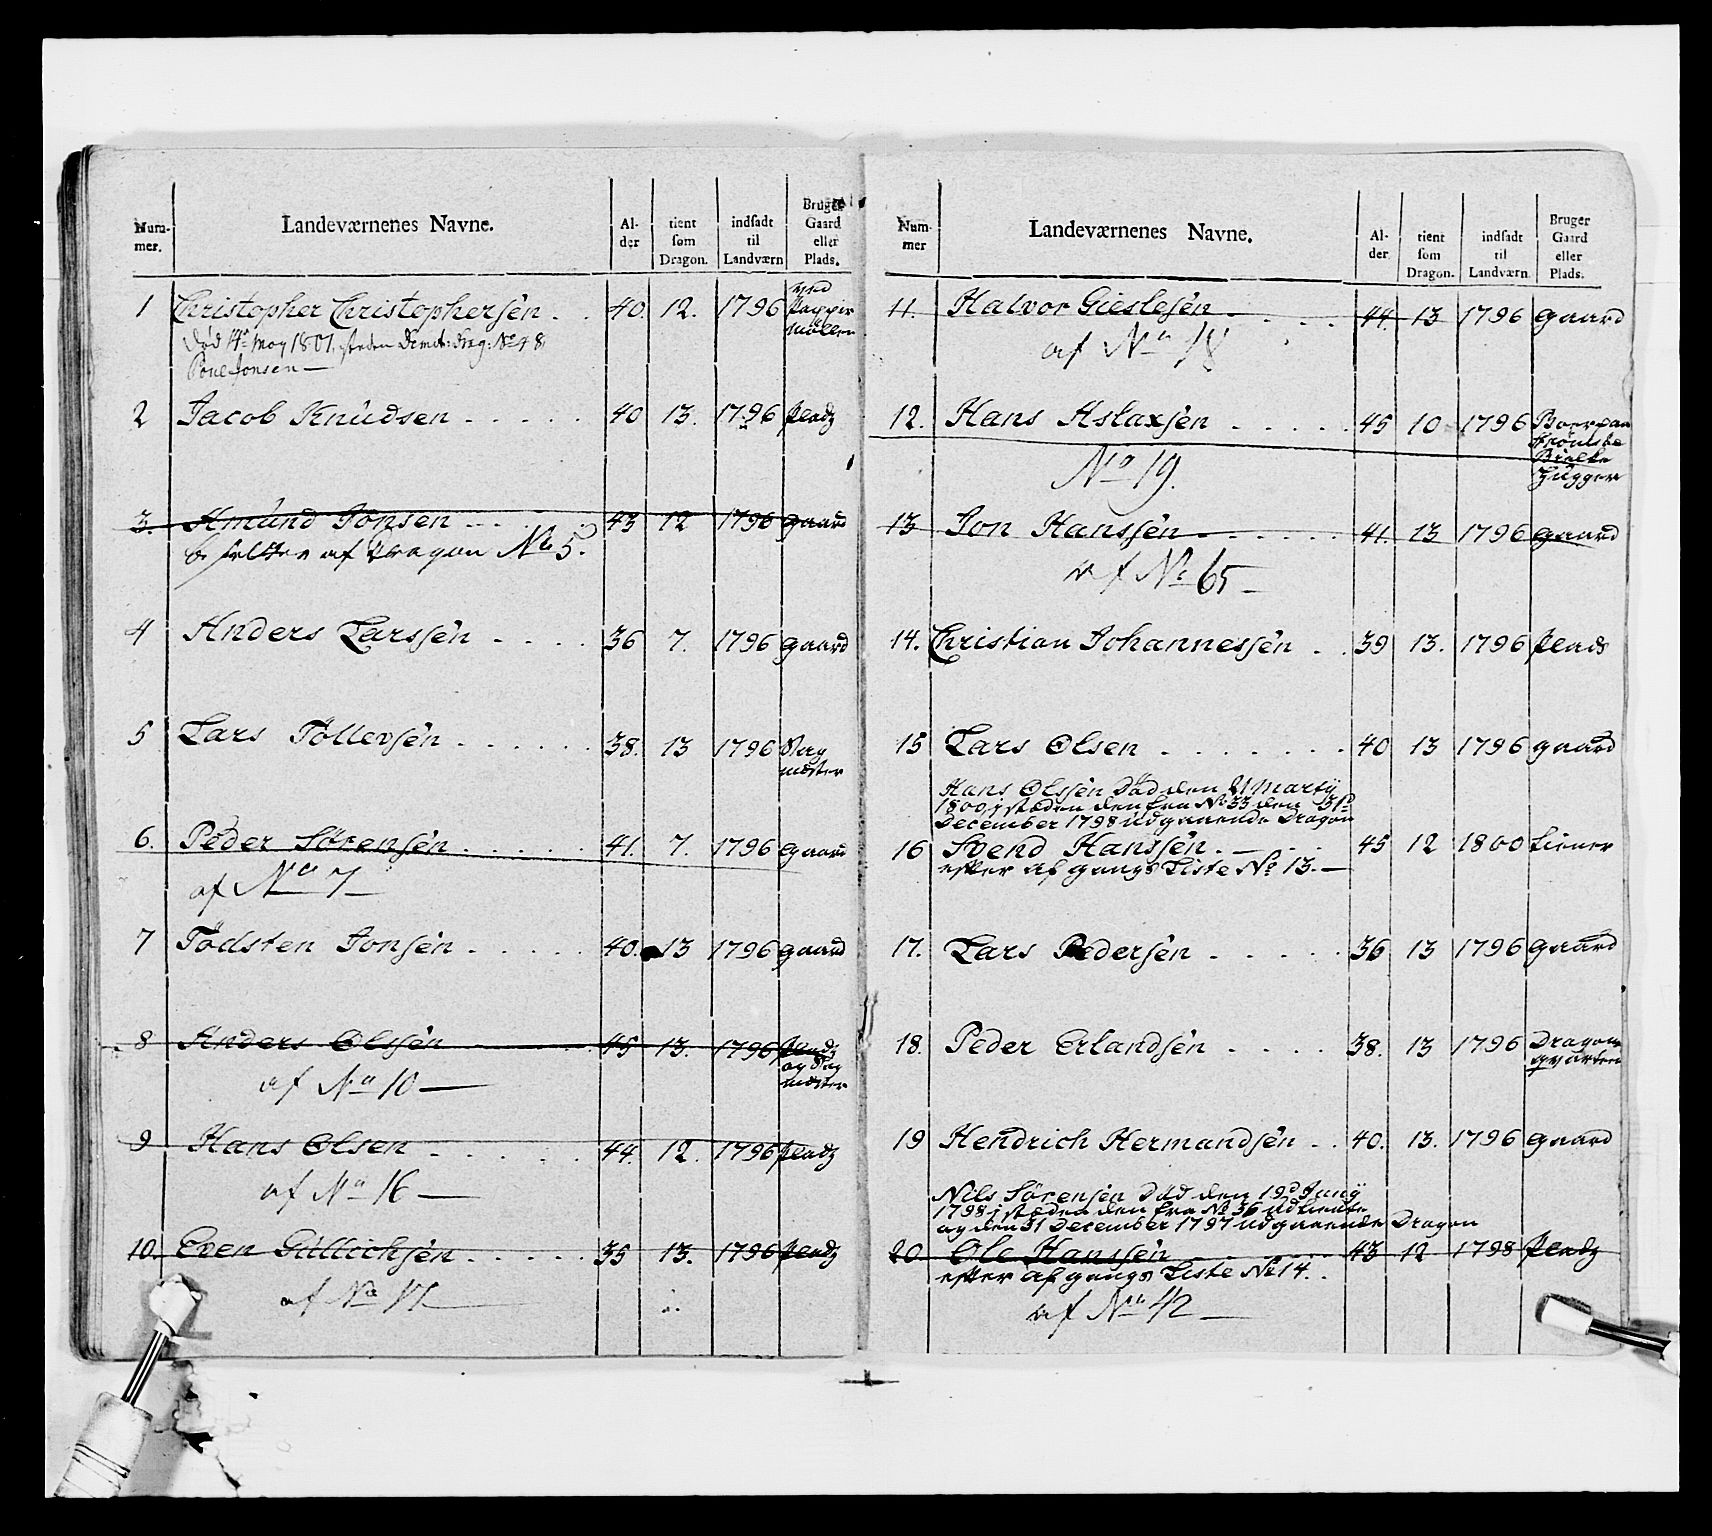 Num-
mer.
Landeværnenes Navne.
Al-
der
tient
som
Dragon.
indsadt
til
Landværn
Bruger
Gaard
eller
Plads.
1 Christopher Christophersen . . 40 12. 1796 ved
Pappir
møllen
død 14de May 1801. steden Demit: drag: No 48
Poul Jonsen —
2 Jacob Knudsen . . . . . 40 13. 1796 Pladz
3. Amund Jonsen . . . . 43 12 1796 gaard
besettes af Dragon No 5.
4 Anders Larssen . . . . 36 7. 1796 gaard
5 Lars Tollevsen . . . . . . 38. 13 1796 Sag
mæster
6. Peder Sørensen . . . . . 41. 7. 1796 gaard
af No 7 —
7 Todsten Jonsen . . . . . 40. 13 1796 gaard
8 Anders Olssen 45 13. 1796 Pladz
og Sag
mæster
af No 10 —
9 Hans Olsen . . . . . . 44. 12. 1796 Pladz
af No 16 —
10. Even Gullichsen . . . . . 35 13. 1796 Pladz
af No 17. —
Num-
mer
Landeværnenes Navne.
Al-
der
tient
som
Dragon.
indsadt
til
Landværn
Bruger
Gaard
eller
Plads.
11. Halvor Gieslesen . . . . 44. 13 1796 gaard
af No 18
12. Hans Aslaxsen . . . . . 45 10 1796
Bielke
Hugger
No 19.
13 Jon Hanssen . . . . . . 41. 13 1796 gaard
af No 65 —
14. Christian Johannessen . . 39 13. 1796 Plads
15 Lars Olsen . . . . . . . 40 13 1796 gaard
Hans Olssen Død den 21 Marty
1800, i stæden den fra No 33 den 31d
December 1798 udgaaende Dragon
16 Svend Hanssen. — . . 45 12 1800 tiener
efter afgangs Liste No 13. —
17. Lars Pedersen . . . . . 36 13 1796 gaard
18. Peder Erlandsen . . . . 38. 13 1796 Dragon
qvarteer
19 Hendrich Hermandsen . . 40. 13. 1796 gaard
Nils Sørensen Død den 19d Juny
1798 i stæden den fra No 36 udtiente
og den 31 December 1797 udgaaende Dragon
20. Ole Hanssen . . . . . 43 12 1798 Pladz
efter afgangs Liste No 14. .
af No 42 —